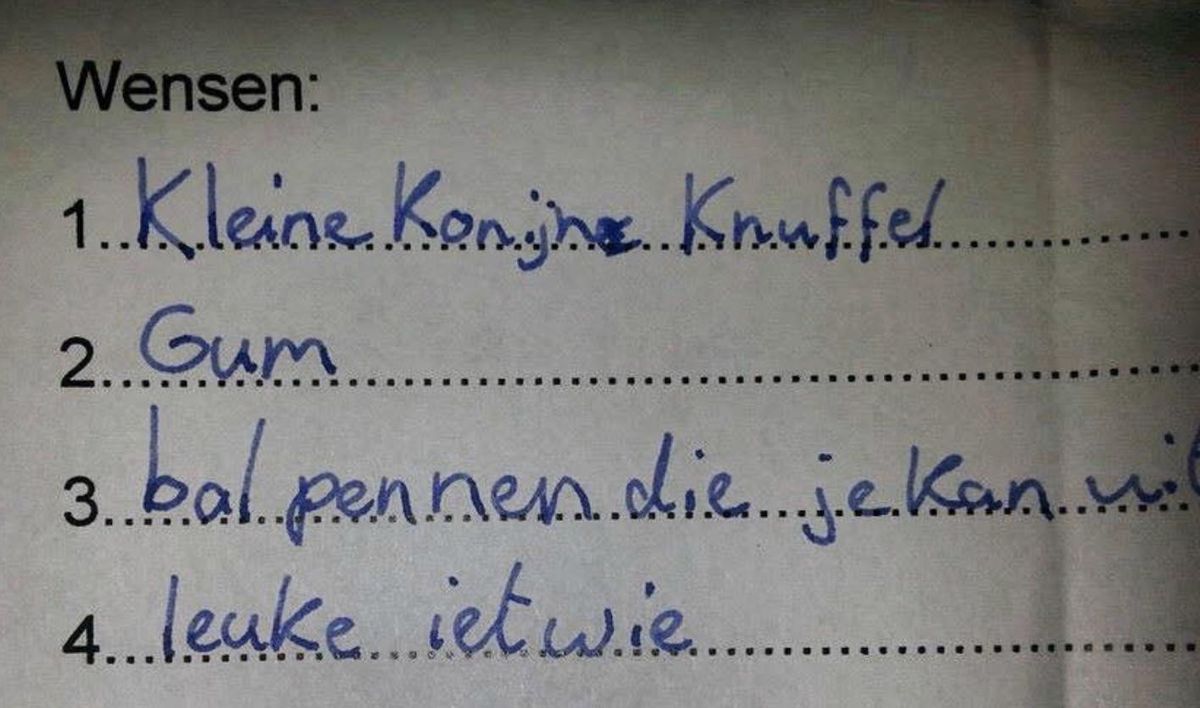 Wensen:
1. Kleine Konijne Knuffel
2. Gum
3. bal pennen die je kan
4. leuke ietwie